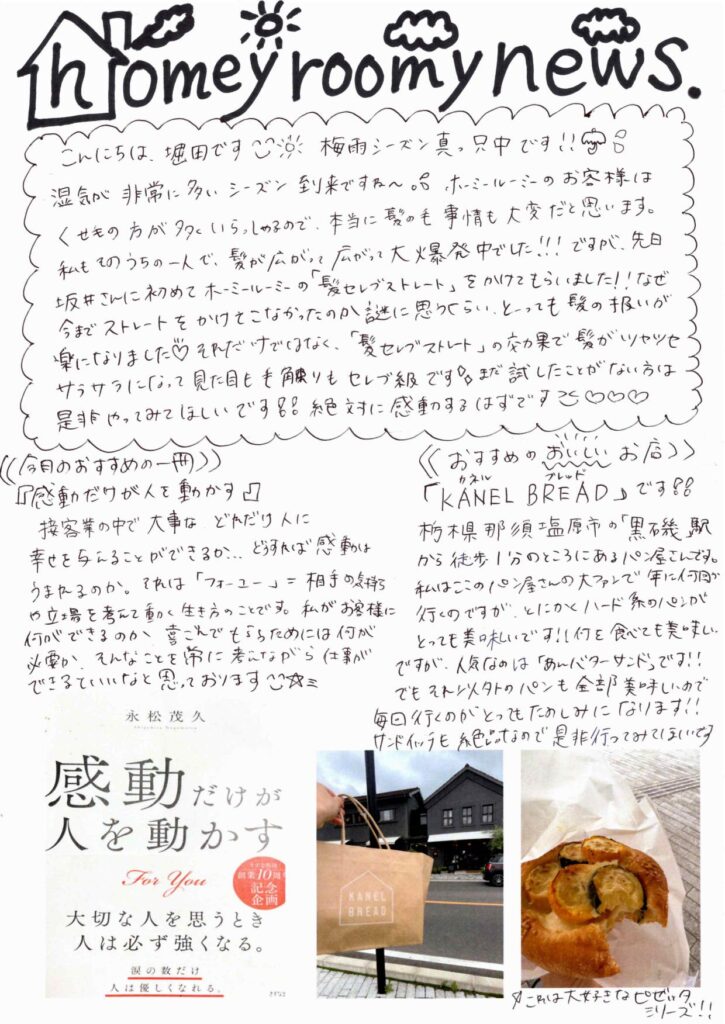 homey roomy news.
こんにちは、堀田です 梅雨シーズン真っ只中です!!
湿気が 非常に多い シーズン 到来ですね〜 ホーミールーミーのお客様は
くせもの方が多くいらっしゃるので、本当に髪の毛事情も大変だと思います。
私もそのうちの一人で、髪が広がって広がって大爆発中でした!!! ですが、先日
坂井さんに初めてホーミールーミーの「髪セレブストレート」をかけてもらいました!! なぜ
今までストレートをかけてこなかったのか謎に思うくらい、とっても髪の扱いが
楽になりました♡ それだけではなく、「髪セレブストレート」の効果で髪がツヤツヤ
サラサラになって見た目も手触りもセレブ級です。まだ試したことがない方は
是非やってみてほしいです!! 絶対に感動するはずです ♡♡♡
《今月のおすすめの一冊》
『感動だけが人を動かす』
接客業の中で大事な どれだけ人に
幸せを与えることができるか… どうすれば感動は
うまれるのか。それは「フォーユー」=相手の気持ち
や立場を考えて動く生き方のことです。私がお客様に
何ができるのか 喜こんでもらうためには何が
必要か、そんなことを常に考えながら仕事が
できるといいなと思っております ☆
《おすすめの おいしい お店》
カネル ブレッド
「KANEL BREAD」です!!
栃木県那須塩原市の「黒磯」駅
から徒歩1分のところにあるパン屋さんです。
私はここのパン屋さんの大ファンで年に何回か
行くのですが、とにかくハード系のパンが
とっても美味しいです!! 何を食べても美味しい
ですが、人気なのは「あんバターサンド」です!!
でもそれ以外のパンも全部美味しいので
毎回行くのがとってもたのしみになります!!
サンドイッチも絶品なので是非行ってみてほしいです
永松茂久
感動だけが
人を動かす
For You
創業10周年
記念
企画
大切な人を思うとき
人は必ず強くなる。
涙の数だけ
人は優しくなれる。
KANEL
BREAD
これは大好きなピザッタ
シリーズ!!